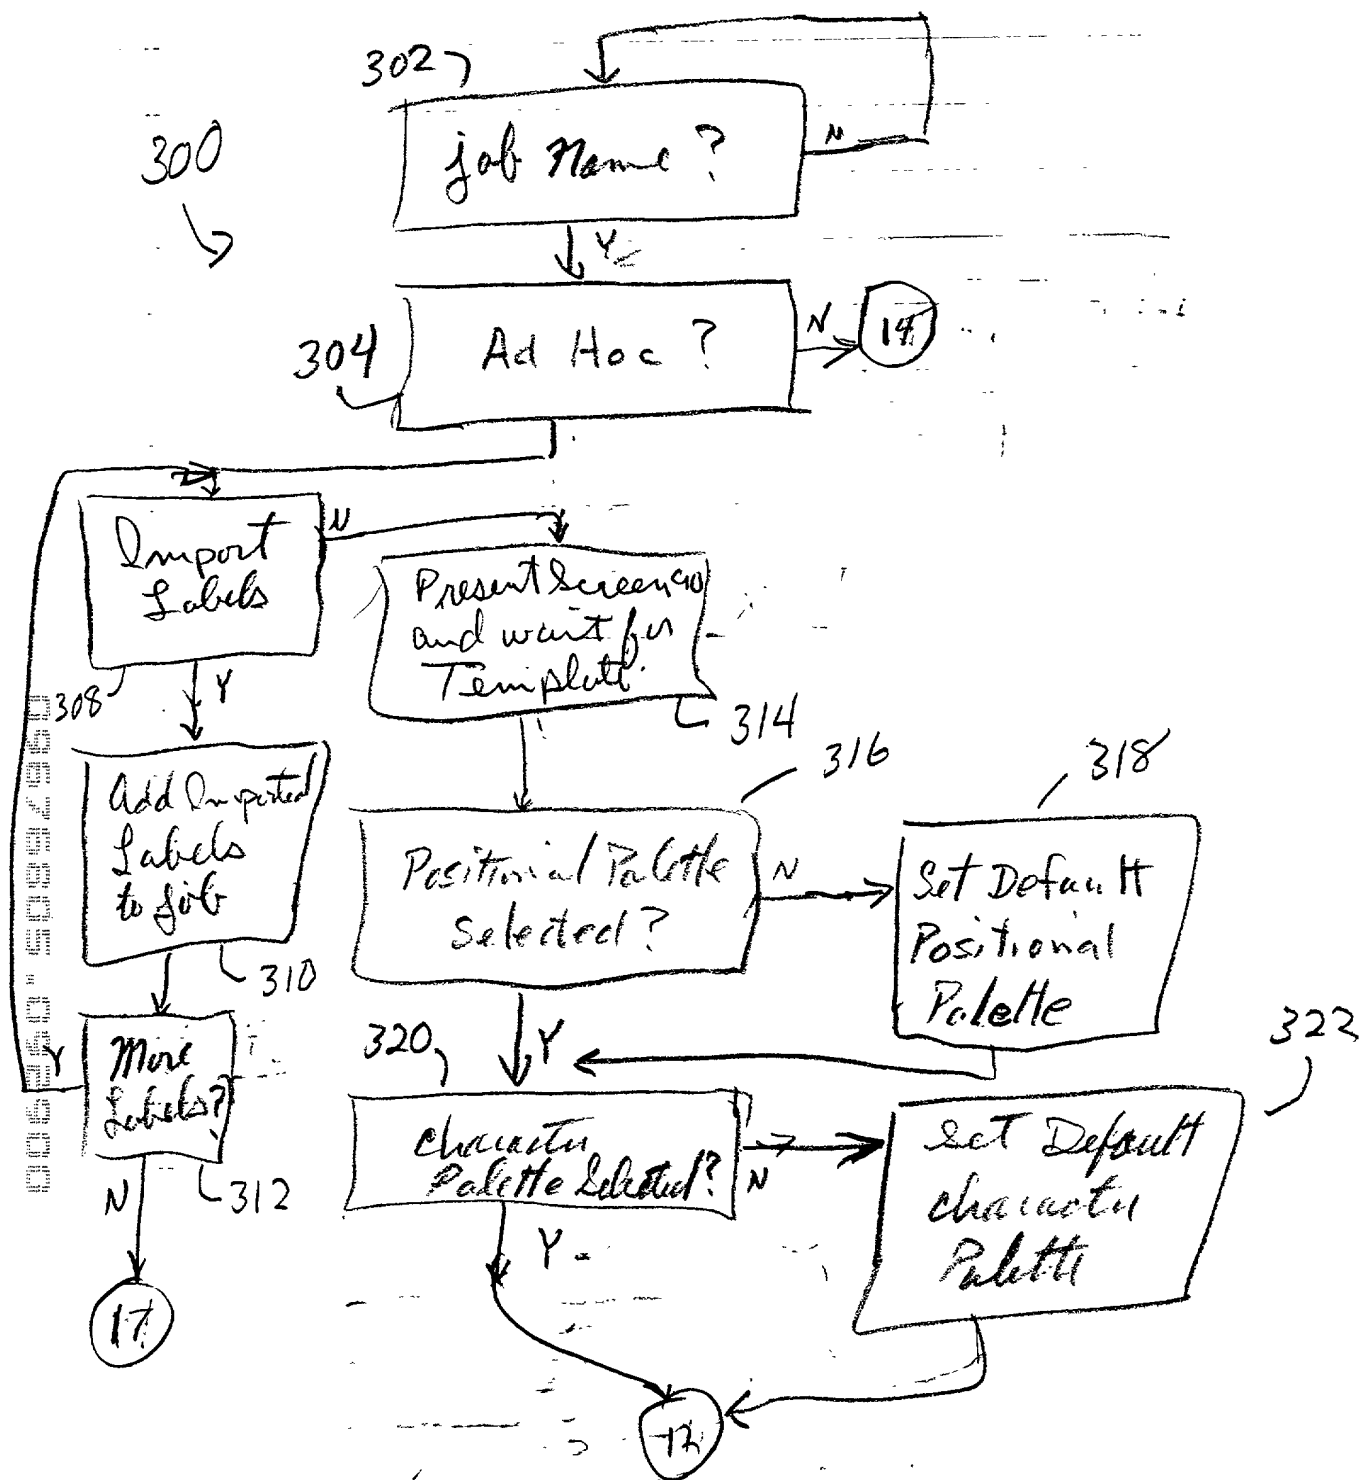 302
300
Job Name?
N
Y
304
Ad Hoc?
N
14
Import
Labels
N
308
Y
Present Screen 90
and wait for
Template
314
Add Imported
Labels
to job
310
316
Positional Palette
Selected?
N
318
Set Default
Positional
Palette
Y
More
Labels?
Y
312
N
17
320
Character
Palette Selected?
N
Y
322
Set Default
character
Palette
12